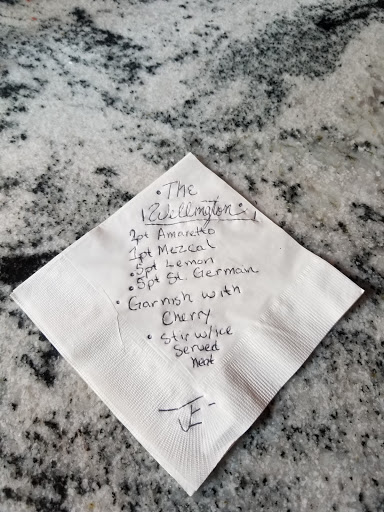 • The
Wellington •
2pt Amaretto
1pt Mezcal
.5pt Lemon
.5pt St. German
• Garnish with
Cherry
• Stir w/ice
Served
neat
JE